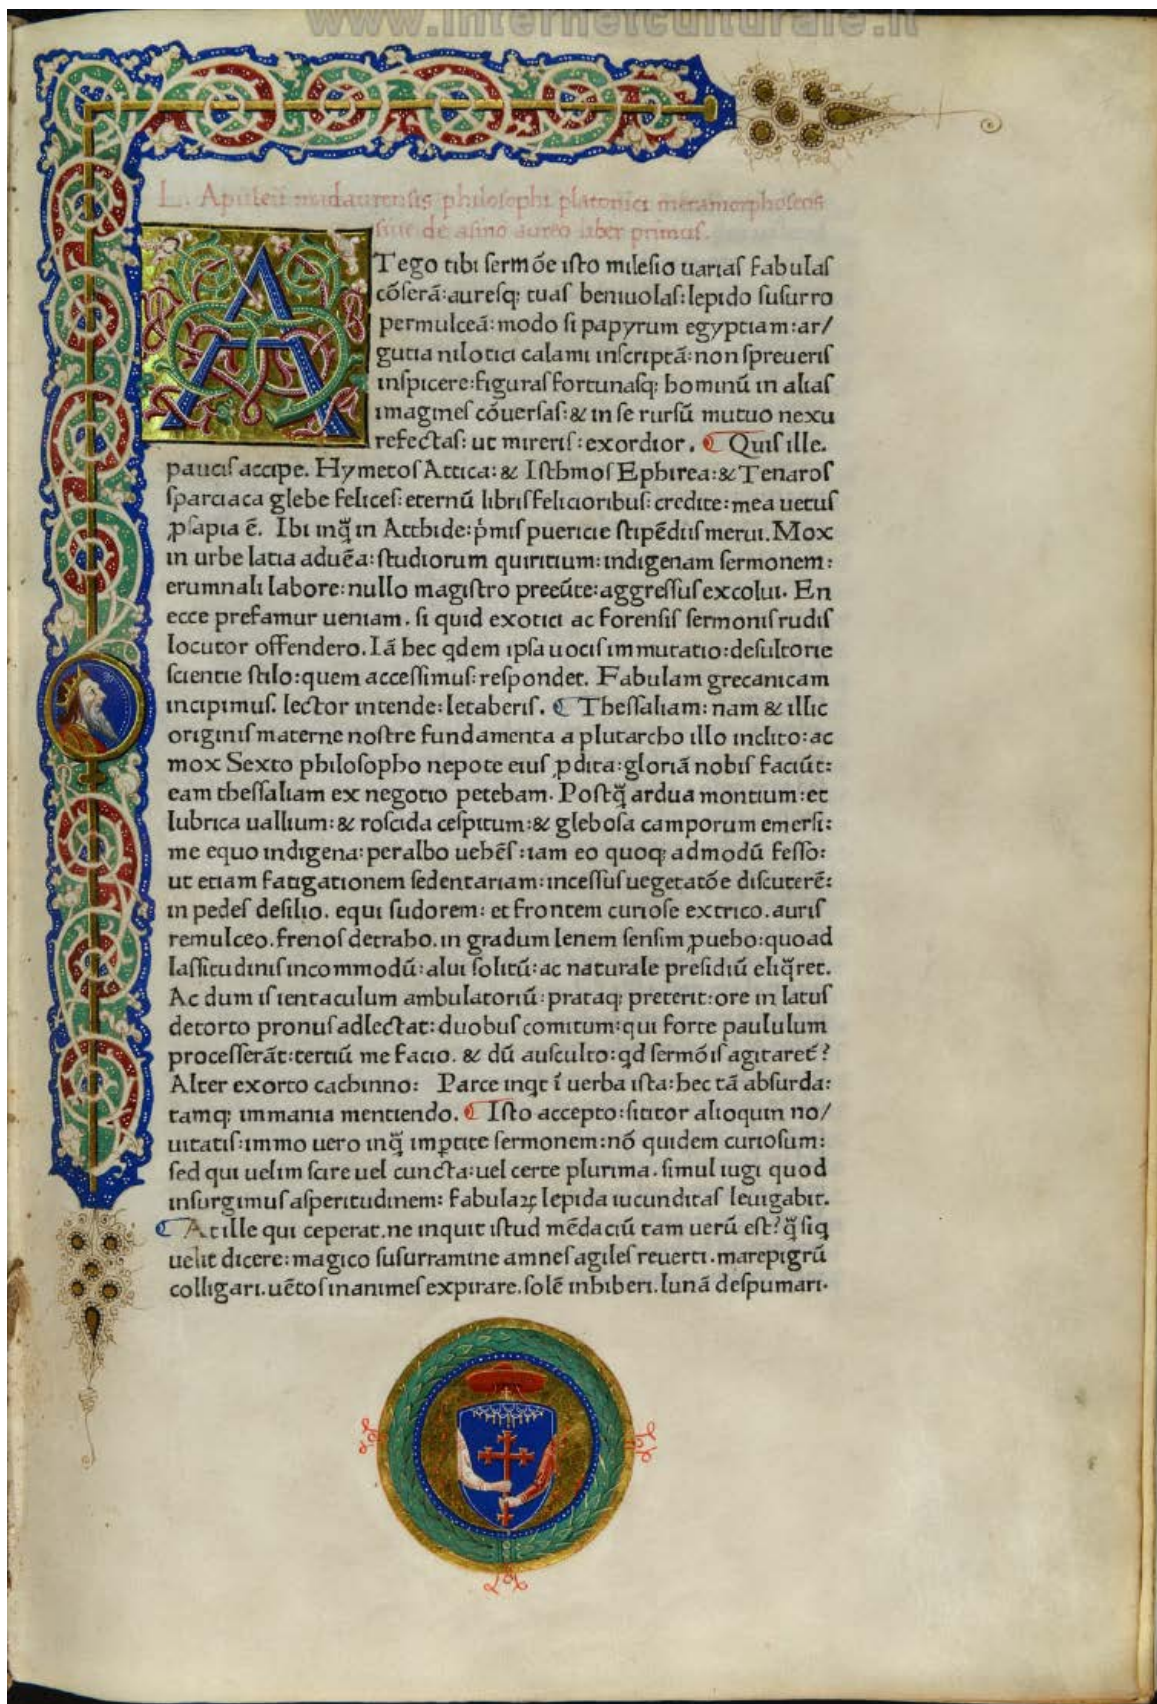 www.internetculturale.it
L. Apuleii madaurensis philosophi platonici metamorphoseos
siue de asino aureo liber primus.
AT ego tibi sermõe isto milesio uarias fabulas
cõserã: auresq; tuas beniuolas: lepido susurro
permulceã: modo si papyrum egyptiam: ar/
gutia nilotici calami inscriptã: non spreueris
inspicere: figuras fortunasq; hominũ in alias
imagines cõuersas: & in se rursũ mutuo nexu
refectas: ut mireris: exordior. ¶ Quis ille.
paucis accipe. Hymetos Attica: & Isthmos Ephirea: & Tenaros
sparciaca glebe felices: eternũ libris felicioribus: credite: mea uetus
ꝓsapia ẽ. Ibi inq̃ in Atthide: p̍mis puericie stipẽdiis merui. Mox
in urbe latia aduẽa: studiorum quiritium: indigenam sermonem:
erumnali labore: nullo magistro preeũte: aggressus excolui. En
ecce prefamur ueniam. si quid exotici ac forensis sermonis rudis
locutor offendero. Iã hec qdem ipsa uocis immutatio: desultorie
scientie stilo: quem accessimus: respondet. Fabulam grecanicam
incipimus. lector intende: letaberis. ¶ Thessaliam: nam & illic
originis materne nostre fundamenta a plutarcho illo inclito: ac
mox Sexto philosopho nepote eius ꝓdita: gloriã nobis faciũt:
eam thessaliam ex negotio petebam. Postq̃ ardua montium: et
lubrica uallium: & roscida cespitum: & glebosa camporum emersi:
me equo indigena: peralbo uehẽs: iam eo quoq; admodũ fesso:
ut etiam fatigationem sedentariam: incessus uegetatõe discuterẽ:
in pedes desilio. equi sudorem: et frontem curiose extrico. auris
remulceo. frenos detraho. in gradum lenem sensim ꝓueho: quoad
lassitudinis incommodũ: alui solitũ: ac naturale presidiũ eliq̃ret.
Ac dum is ientaculum ambulatoriũ: prataq; preterit: ore in latus
detorto pronus adlectat: duobus comitum: qui forte paululum
processerãt: tertiũ me facio. & dũ ausculto: qd sermõis agitaret̃?
Alter exorto cachinno: Parce inqt ĩ uerba ista: hec tã absurda:
tamq; immania mentiendo. ¶ Isto accepto: sititor alioquin no/
uitatis: immo uero inq̃ imꝑtite sermonem: nõ quidem curiosum:
sed qui uelim scire uel cuncta: uel certe plurima. simul iugi quod
insurgimus asperitudinem: fabulaꝝ lepida iucunditas leuigabit.
¶ At ille qui ceperat. ne inquit istud mẽdaciũ tam uerũ est? q̃ siq
uelit dicere: magico susurramine amnes agiles reuerti. mare pigrũ
colligari. uẽtos inanimes expirare. solẽ inhiberi. lunã despumari.